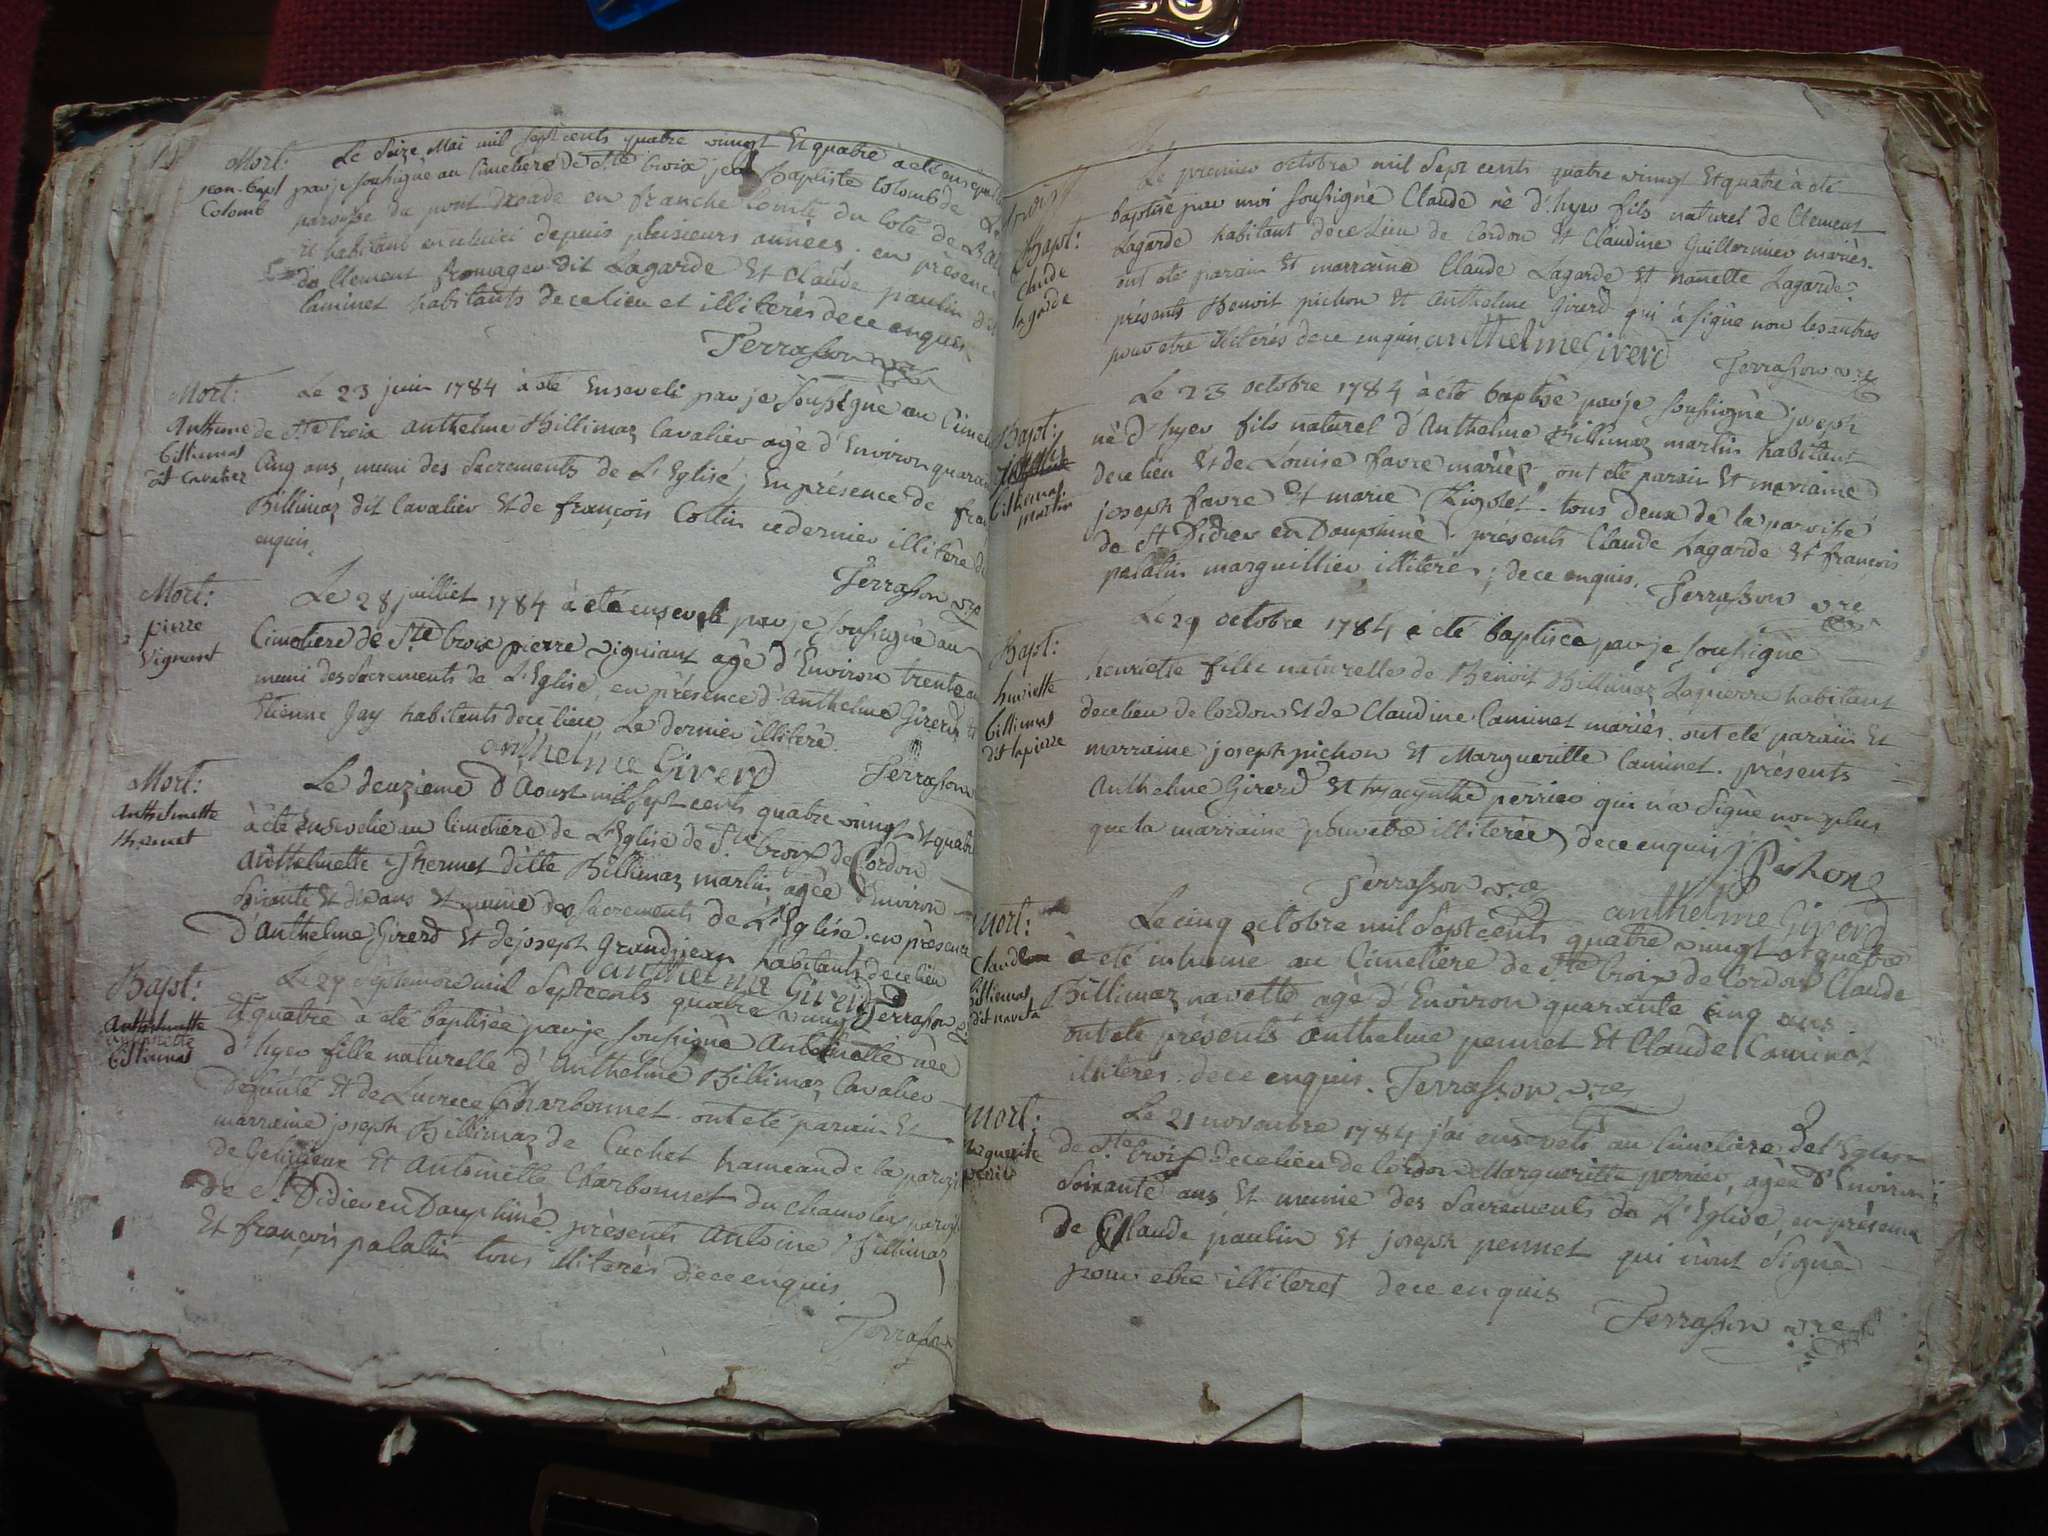 Mort:
jean-bapt
Colomb
Le Seize Mai mil sept cents quatre vingt Et quatre à eté enseveli
par je soussigné au Cimetiere de Ste Croix jean Baptiste Colomb de
paroisse du pont en franche Comté du coté de
et habitant en celuici depuis plusieurs années, en présence
de Clement fromager dit Lagarde Et Claude paulin dit
Caminet habitants decelieu et illiterés dece enquis
Terrasson vre
Mort:
Anthime
billiemas
dt Cavalier
Le 23 juin 1784 à eté Enseveli par je soussigné au Cimetiere
de Ste Croix anthelme Billimaz Cavalier agé d'Environ quarante
Cinq ans, muni des Sacrements de L'Eglise; En présence de fran
Billimaz dit Cavalier Et de françois Collin cedernier illitéré de
enquis.
Terrasson vre
Mort:
pierre
Vignant
Le 28 juilliet 1784 à eté enseveli par je soussigné au
Cimetiere de Ste Croix pierre Vigniant agé d'Environ trente ans
muni des Sacrements de L'Eglise, en présence d'Anthelme Girerd, Et
Etienne Jay habitants dece lieu, Le dernier illitéré.
anthelme Girerd
Terrasson
Mort:
Anthelmette
thermet
Le deuzieme d'Aoust mil sept cents quatre vingt Et quatre
à eté Ensevelie au Cimetiere de L'Eglise de Ste Croix de Cordon
Anthelmette Thermet ditte Billimaz martin agée d'Environ
soixante Et dix ans Et munie des Sacrements de L'Eglise. en présence
D'Anthelme Girerd Et de joseph Grandjean habitants decelieu
anthelme Girerd Terrasson
Bapt:
Anthelmette
billiemas
Le 29 septembre mil Sept cents quatre vingt
Et quatre à eté baptisée par je soussigné née
d'hyer fille naturelle d'Anthelme Billimaz Cavalier
Défunté Et de Lucrece Charbonnet. ont eté parrain Et
marraine joseph Billimaz de Cuchet hameau de la paroisse
de Gelignieux Et Antoinette Charbonnet du Chamolay paroisse
de St Didier en Dauphiné. présents Antoine Billimaz
Et françois palatin tous illiterés dece enquis.
Terrasson
Bapt:
Claude
lagarde
Le premier octobre mil Sept cents quatre vingt Et quatre à eté
baptisé par moi soussigné Claude né d'hyer fils naturel de Clement
Lagarde habitant dece Lieu de Cordon Et Claudine Guillermier mariés.
ont eté parain Et marraine Claude Lagarde Et nanette Lagarde.
présents Benoit pichon Et Anthelme Girerd qui à signé non les autres
pour etre illiterés dece enquis. anthelme Girerd
Terrasson vre
Bapt:
joseph
billiemas
martin
Le 23 octobre 1784 à eté baptisé par je soussigné joseph
né d'hyer fils naturel d'Anthelme Billimaz martin habitant
dece lieu Et de Louise favre mariés; ont eté parain Et marraine
joseph favre Et marie Rigolet. tous deux de la paroisse
de St Didier en Dauphiné. présents Claude Lagarde Et françois
palatin marguillier, illiterés; dece enquis. Terrasson vre
Bapt:
henriette
billiemas
dit lapierre
Le 29 octobre 1784 à eté baptisée par je soussigné
henriette fille naturelle de Benoit Billimaz Lapierre habitant
decelieu de Cordon Et de Claudine Caminet mariés. ont eté parain Et
marraine joseph pichon Et Margueritte Caminet. présents
Anthelme Girerd Et hyacynthe perrier qui n'a Signé non plus
que la marraine pour etre illiterées dece enquis. J. Pichon
Terrasson vre anthelme Girerd
Mort:
Claude
billiemas
dit naveta
Le cinq octobre mil Sept cents quatre vingt et quatre
à eté inhumé au Cimetiere de Ste Croix de Cordon Claude
Billimaz navette, agé d'Environ quarante cinq ans.
ont eté présents Anthelme pennet Et Claude Caminet
illiterés. dece enquis. Terrasson vre
Mort:
perrier
Le 21 novembre 1784 j'ai enseveli au Cimetiere de l'Eglise
de Ste Croix decelieu de Cordon Margueritte perrier, agée d'Environ
Soixante ans Et munie des Sacrements de L'Eglise, en présence
de Claude paulin Et joseph pennet qui n'ont Signé
pour etre illiteret dece enquis
Terrasson vre